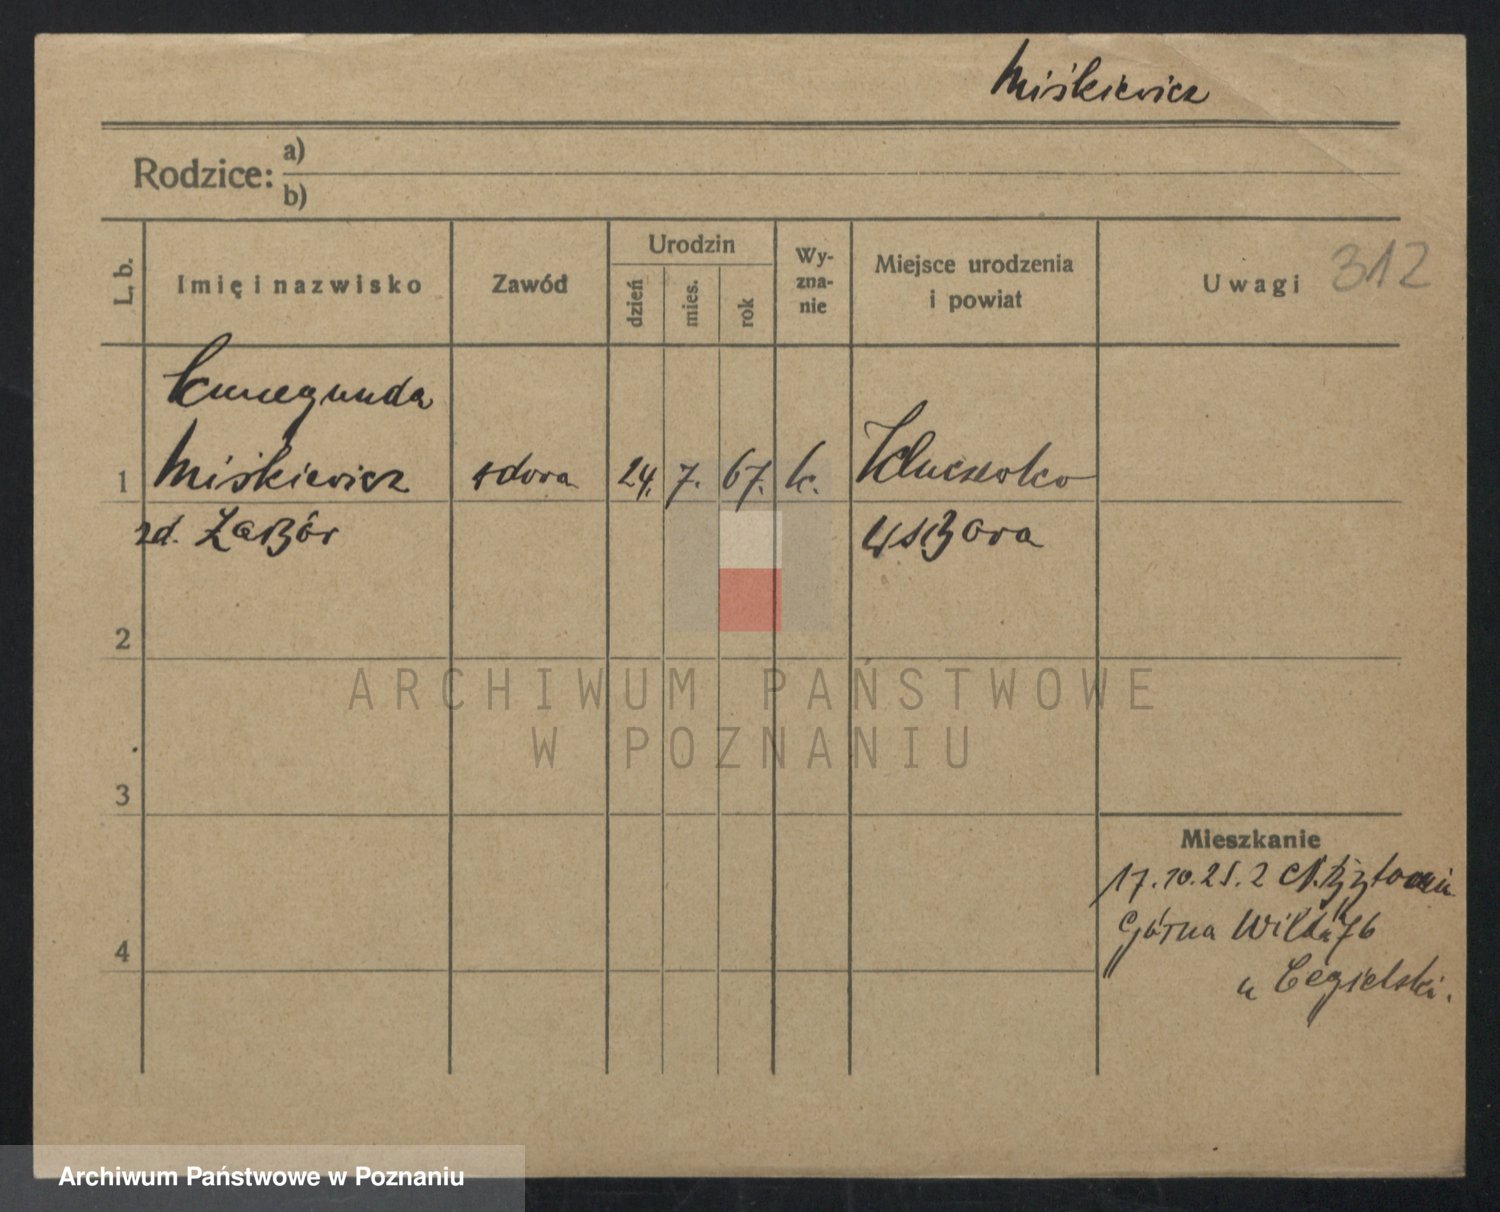 Miśkiewicz
Rodzice: a)
b)
L. b.
Imię i nazwisko
Zawód
Urodzin
dzień
mies.
rok
Wy-
zna-
nie
Miejsce urodzenia
i powiat
Uwagi
312
Kunegunda
1 Miśkiewicz wdowa 24. 7. 67. k.
2
3
4
ARCHIWUM PAŃSTWOWE
W POZNANIU
Mieszkanie
17.10.25. z
Górna Wilda 76
u Cegielski.
Archiwum Państwowe w Poznaniu